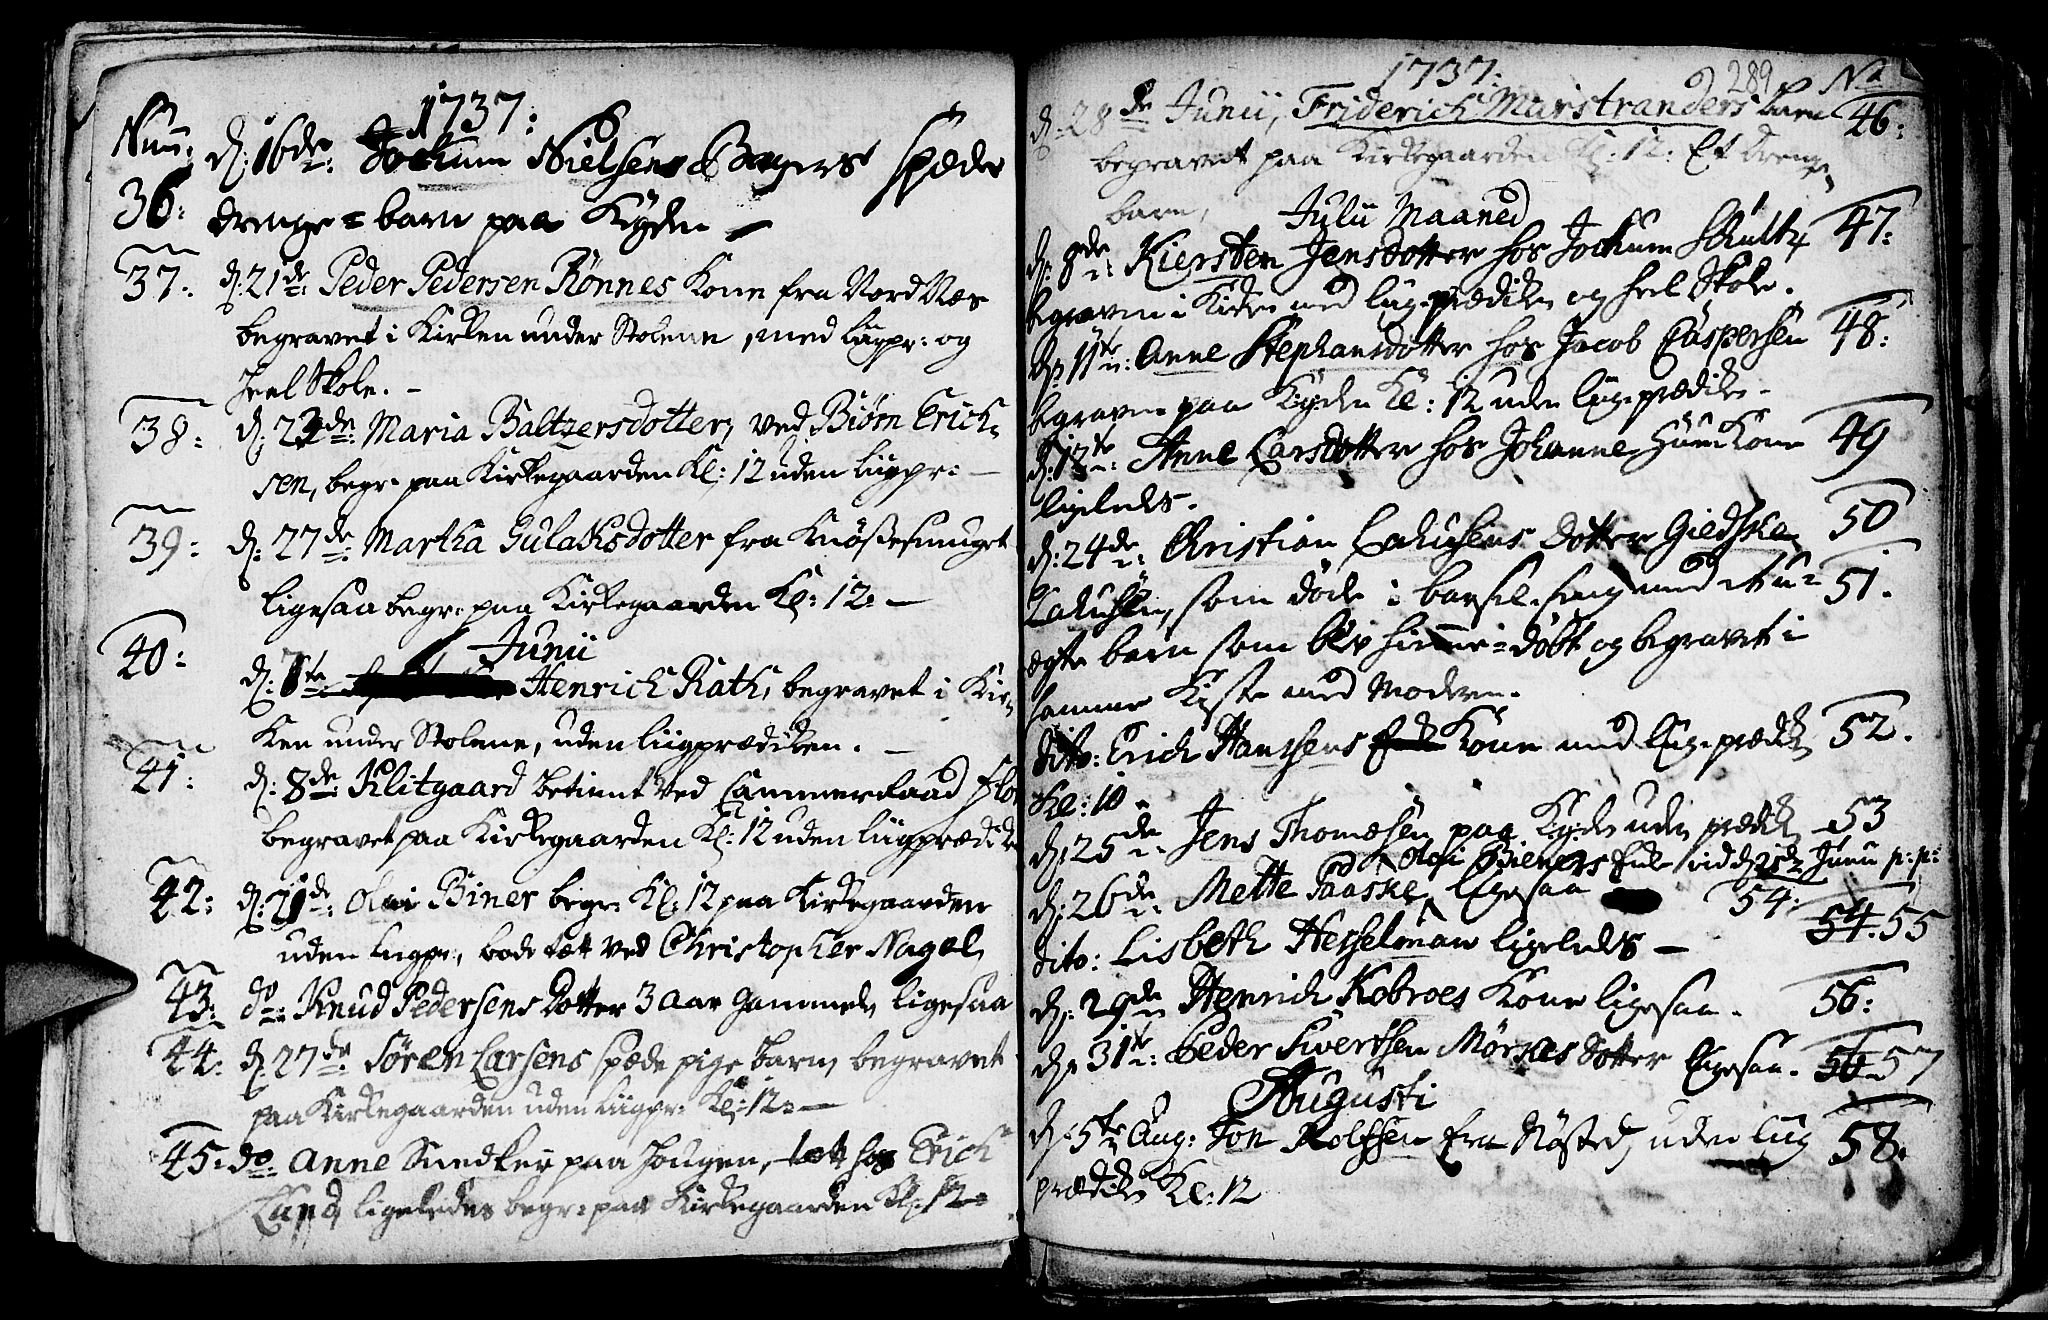 1737:
Num:
36: d: 16de: Jochum Nielsens Bagers spæde
drenge = barn paa Kyden
37: d: 21de: Peder Pedersen Rönnes Kone fra Nord Næs
begravet i Kirken under Stolene, med Liigpr: og
heel Skole.
38: d: 23de: Maria Baltzersdotter, ved Biørn Erich-
sen, begr: paa Kirkegaarden Kl: 12 uden Liigpr:
39: d: 27de: Martha Gulachsdotter fra Knößesmuget
ligesaa begr: paa Kirkegaarden Kl: 12:
Junii
40: d: 7te Henrich Rath, begravet i Kir-
ken under Stolene, uden Liigprædiken.
41: d: 8de: Klitgaard betient ved Cammerraad Flo
begravet paa Kirkegaarden Kl: 12 uden Liigprædik
42: d: 21de: Olai Biner begr: Kl: 12 paa Kirkegaarden
uden Liigpr:, boede tæt ved Christopher Nagel,
43: do: Knud Pedersens Dotter 3 aar gammel, ligesaa
44: d: 27de Sören Larsens spæde pige barn, begravet
paa Kirkegaarden uden Liigpr: Kl: 12:
45: do: Anne Snedker paa Hougen, tæt hos Erich
Lund, ligeledes begr: paa Kirkegaarden Kl: 12
1737:
289
No
d: 28de Junii, Friderich Marstranders barn 46:
begravet paa Kirkegaarden Kl: 12: Et Drenge
barn,
Julii Maaned
d: 8de: Kiersten Jensdotter hos Jochum Schultz 47:
begraven i Kirken med Liig-prædiken og heel Skole.
d: 11te: Anne Stephansdotter hos Jacob Caspersen 48:
begraven paa Kyden Kl: 12 uden liigprædiken
d: 12te: Anne Larsdotter hos Johanne Kone 49
ligeledes.
d: 24de: Christian Lakusens Dotter Giedske 50
som döde i barsel-seng med it u= 51.
ægte barn som blev hieme-döbt og begravet i
samme Kiste med Moderen.
dito: Erich Hanssens Kone med Liig-prædik 52.
Kl: 10
d: 25de Jens Thomæsen paa Kyden uden prædik 53
Olai Bieners Enke vid d. 21de Junii p: p:
d: 26de: Mette Paaske, ligesaa 54:
dito: Lisbeth Hesselman ligeledes 54. 55
d: 29de Henrich Kobroes Kone ligesaa. 56:
d: 31te: Peder Siversen Mörses Dotter ligesaa. 56 57
Augusti
d: 5te Aug: Jon Rolfsen fra Nösted, uden Liig 58.
prædiken Kl: 12